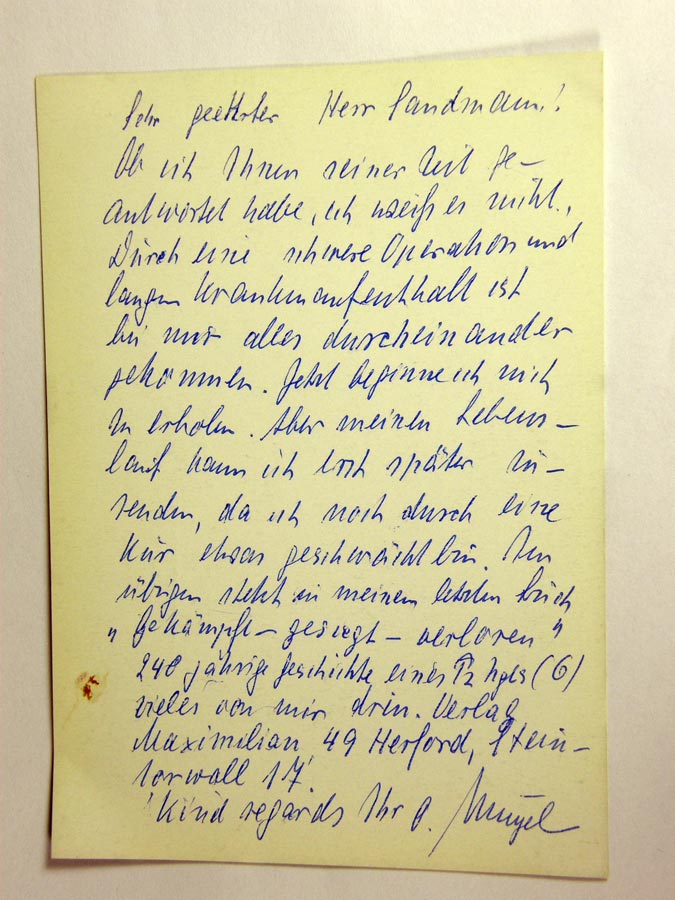 Sehr geehrter Herr Sandmann!
Ob ich Ihnen seiner Zeit ge-
antwortet habe, ich weiß es nicht.
Durch eine schwere Operation und
langen Krankenaufenthalt ist
bei mir alles durcheinander
gekommen. Jetzt beginne ich mich
zu erholen. Aber meinen Lebens-
lauf kann ich erst später zu-
senden, da ich noch durch eine
Kur etwas geschwächt bin. Im
übrigen steht in meinem letzten Buch
"Gekämpft - gesiegt - verloren"
240 jährige Geschichte eines Rgts (6)
vieles von mir drin. Verlag
Maximilian 49 Herford, Stein-
torwall 17.
Kind regards Ihr O.